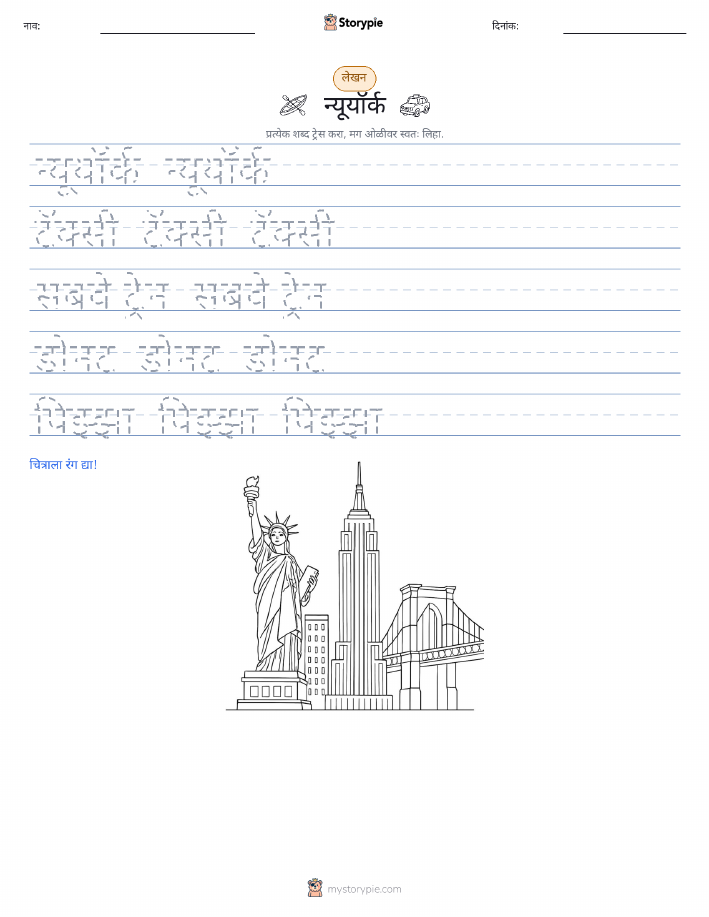 नाव:
Storypie
दिनांक:
लेखन
न्यूयॉर्क
प्रत्येक शब्द ट्रेस करा, मग ओळीवर स्वतः लिहा.
न्यूयॉर्क न्यूयॉर्क
टॅक्सी टॅक्सी टॅक्सी
सबवे ट्रेन सबवे ट्रेन
डोनट डोनट डोनट
पिझ्झा पिझ्झा पिझ्झा
चित्राला रंग द्या!
mystorypie.com